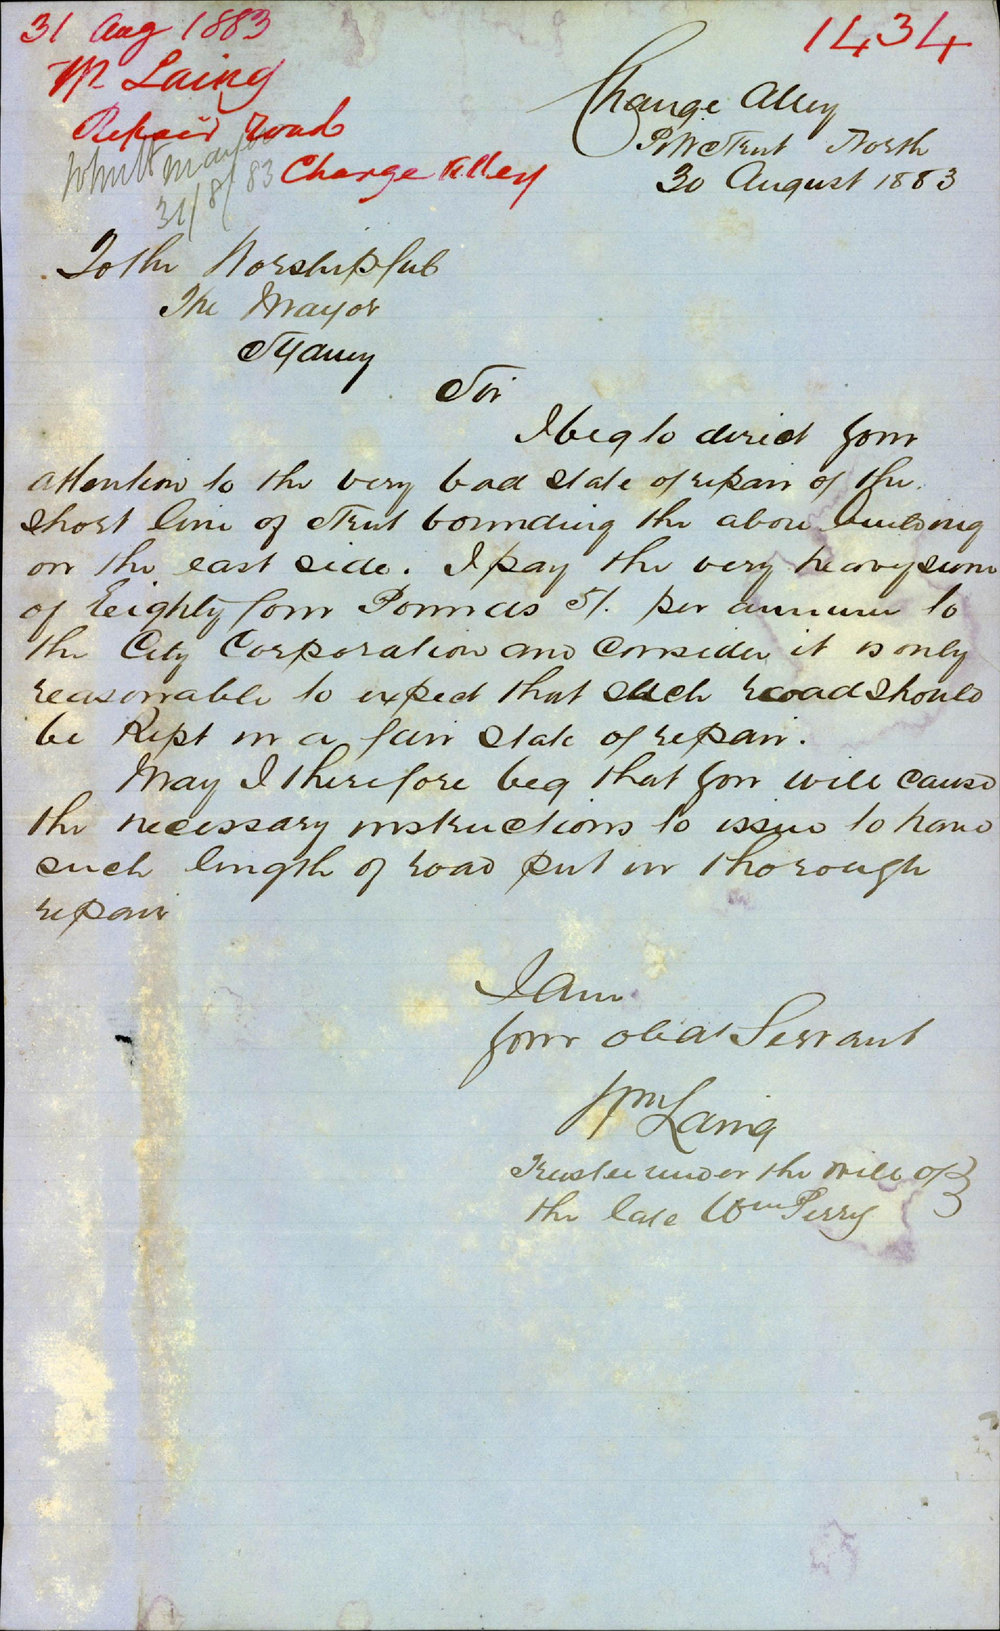 31 Aug 1883
1434
Wm Laing
Repair road
Change Alley
31/8/83
Change Alley
Pitt Street North
30 August 1883
To the Worshipful
The Mayor
Sydney
Sir
I beg to direct your
attention to the very bad state of repair of the
short line of Street bounding the above building
on the east side. I pay the very heavy sum
of Eeighty four Pounds 5/. per annum to
the City Corporation and consider it is only
reasonable to expect that such road should
be kept in a fair state of repair.
May I therefore beg that you will cause
the necessary instructions to issue to have
such length of road put in thorough
repair
I am
your obdt Servant
Wm Laing
Trustee under the will of
the late Wm Perry